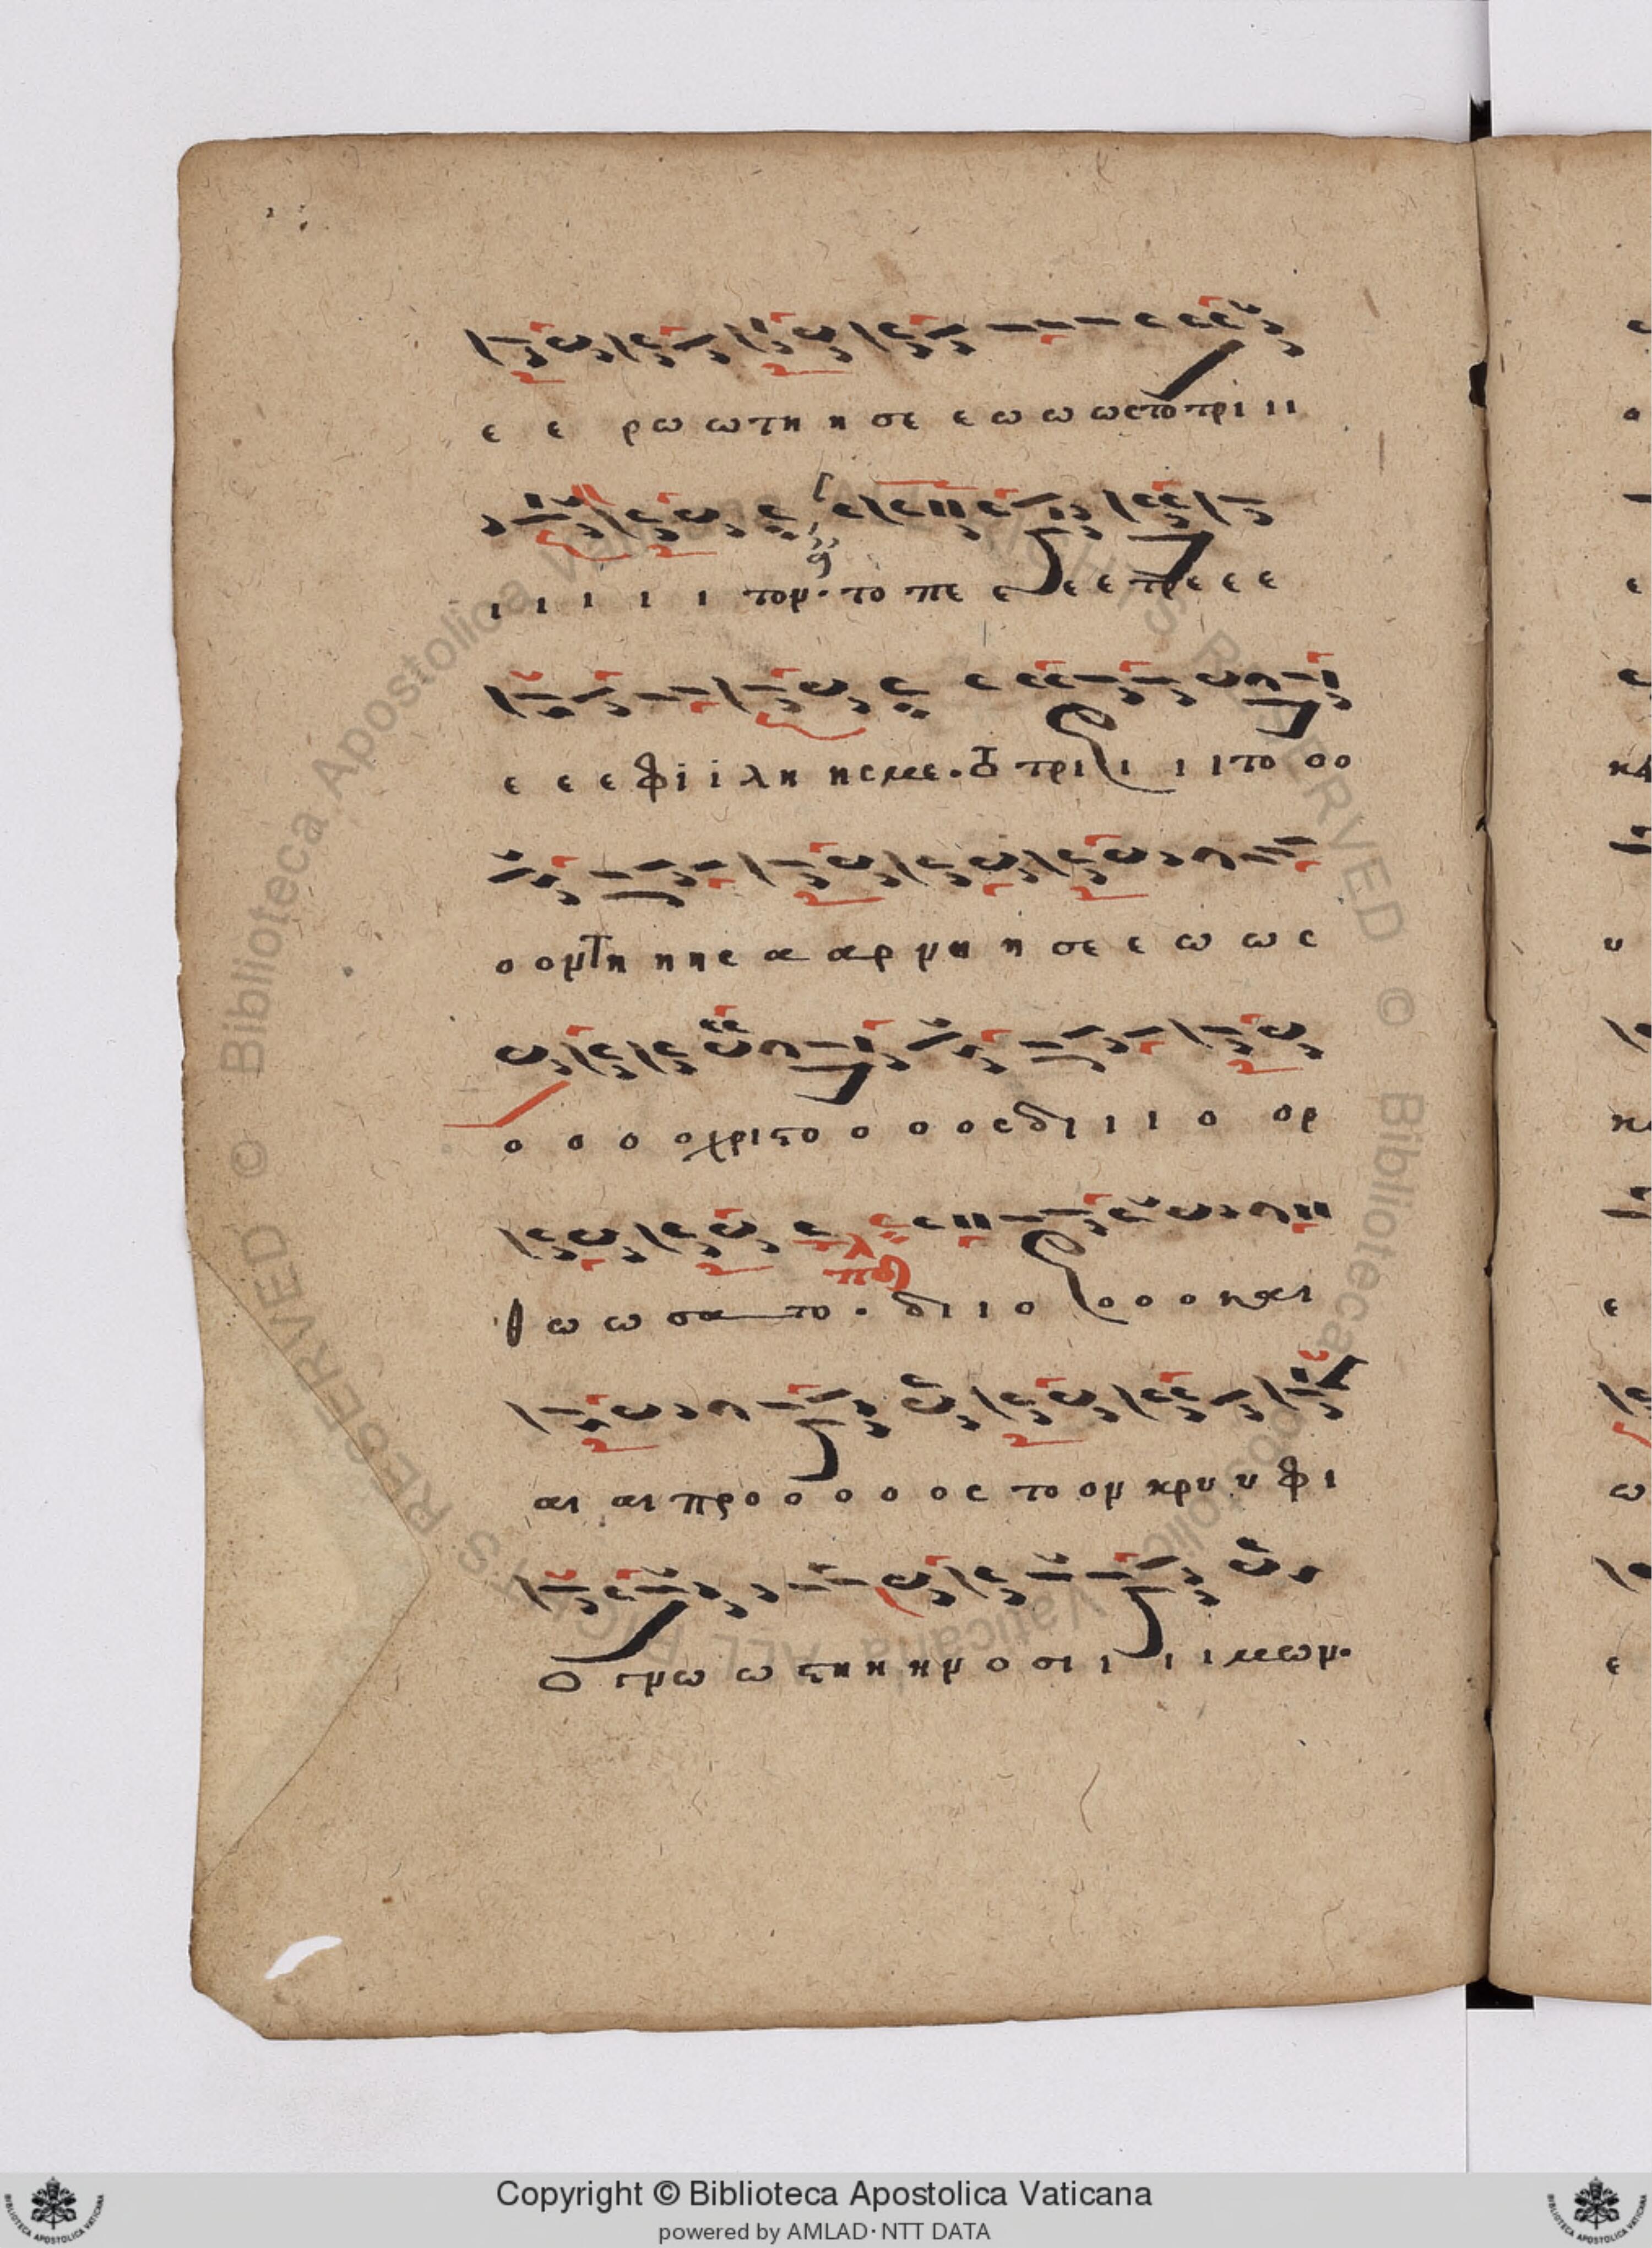 ε ε ρω ωτη η σε ε ω ω ωςτο τρι ι ι
ι ι ι ι ι τον· το πε ε ε ε τρε ε ε
ε ε ε φι ι λη ηςμε· Ὁ τρι ι ι ιτο οο
ο οντη ηης α αρ νη η σε ε ω ω ς
ο ο ο οχριςτο ο ο οςδι ι ι ο ορ
θ ω ω σα το· δι ι ο ο ο ο και
αι αι προ ο ο ο ο ος το ον κρυ υ φι
Ο γνω ω ςτη η ην ο σι ι ι ι μων·
Copyright © Biblioteca Apostolica Vaticana
powered by AMLAD·NTT DATA